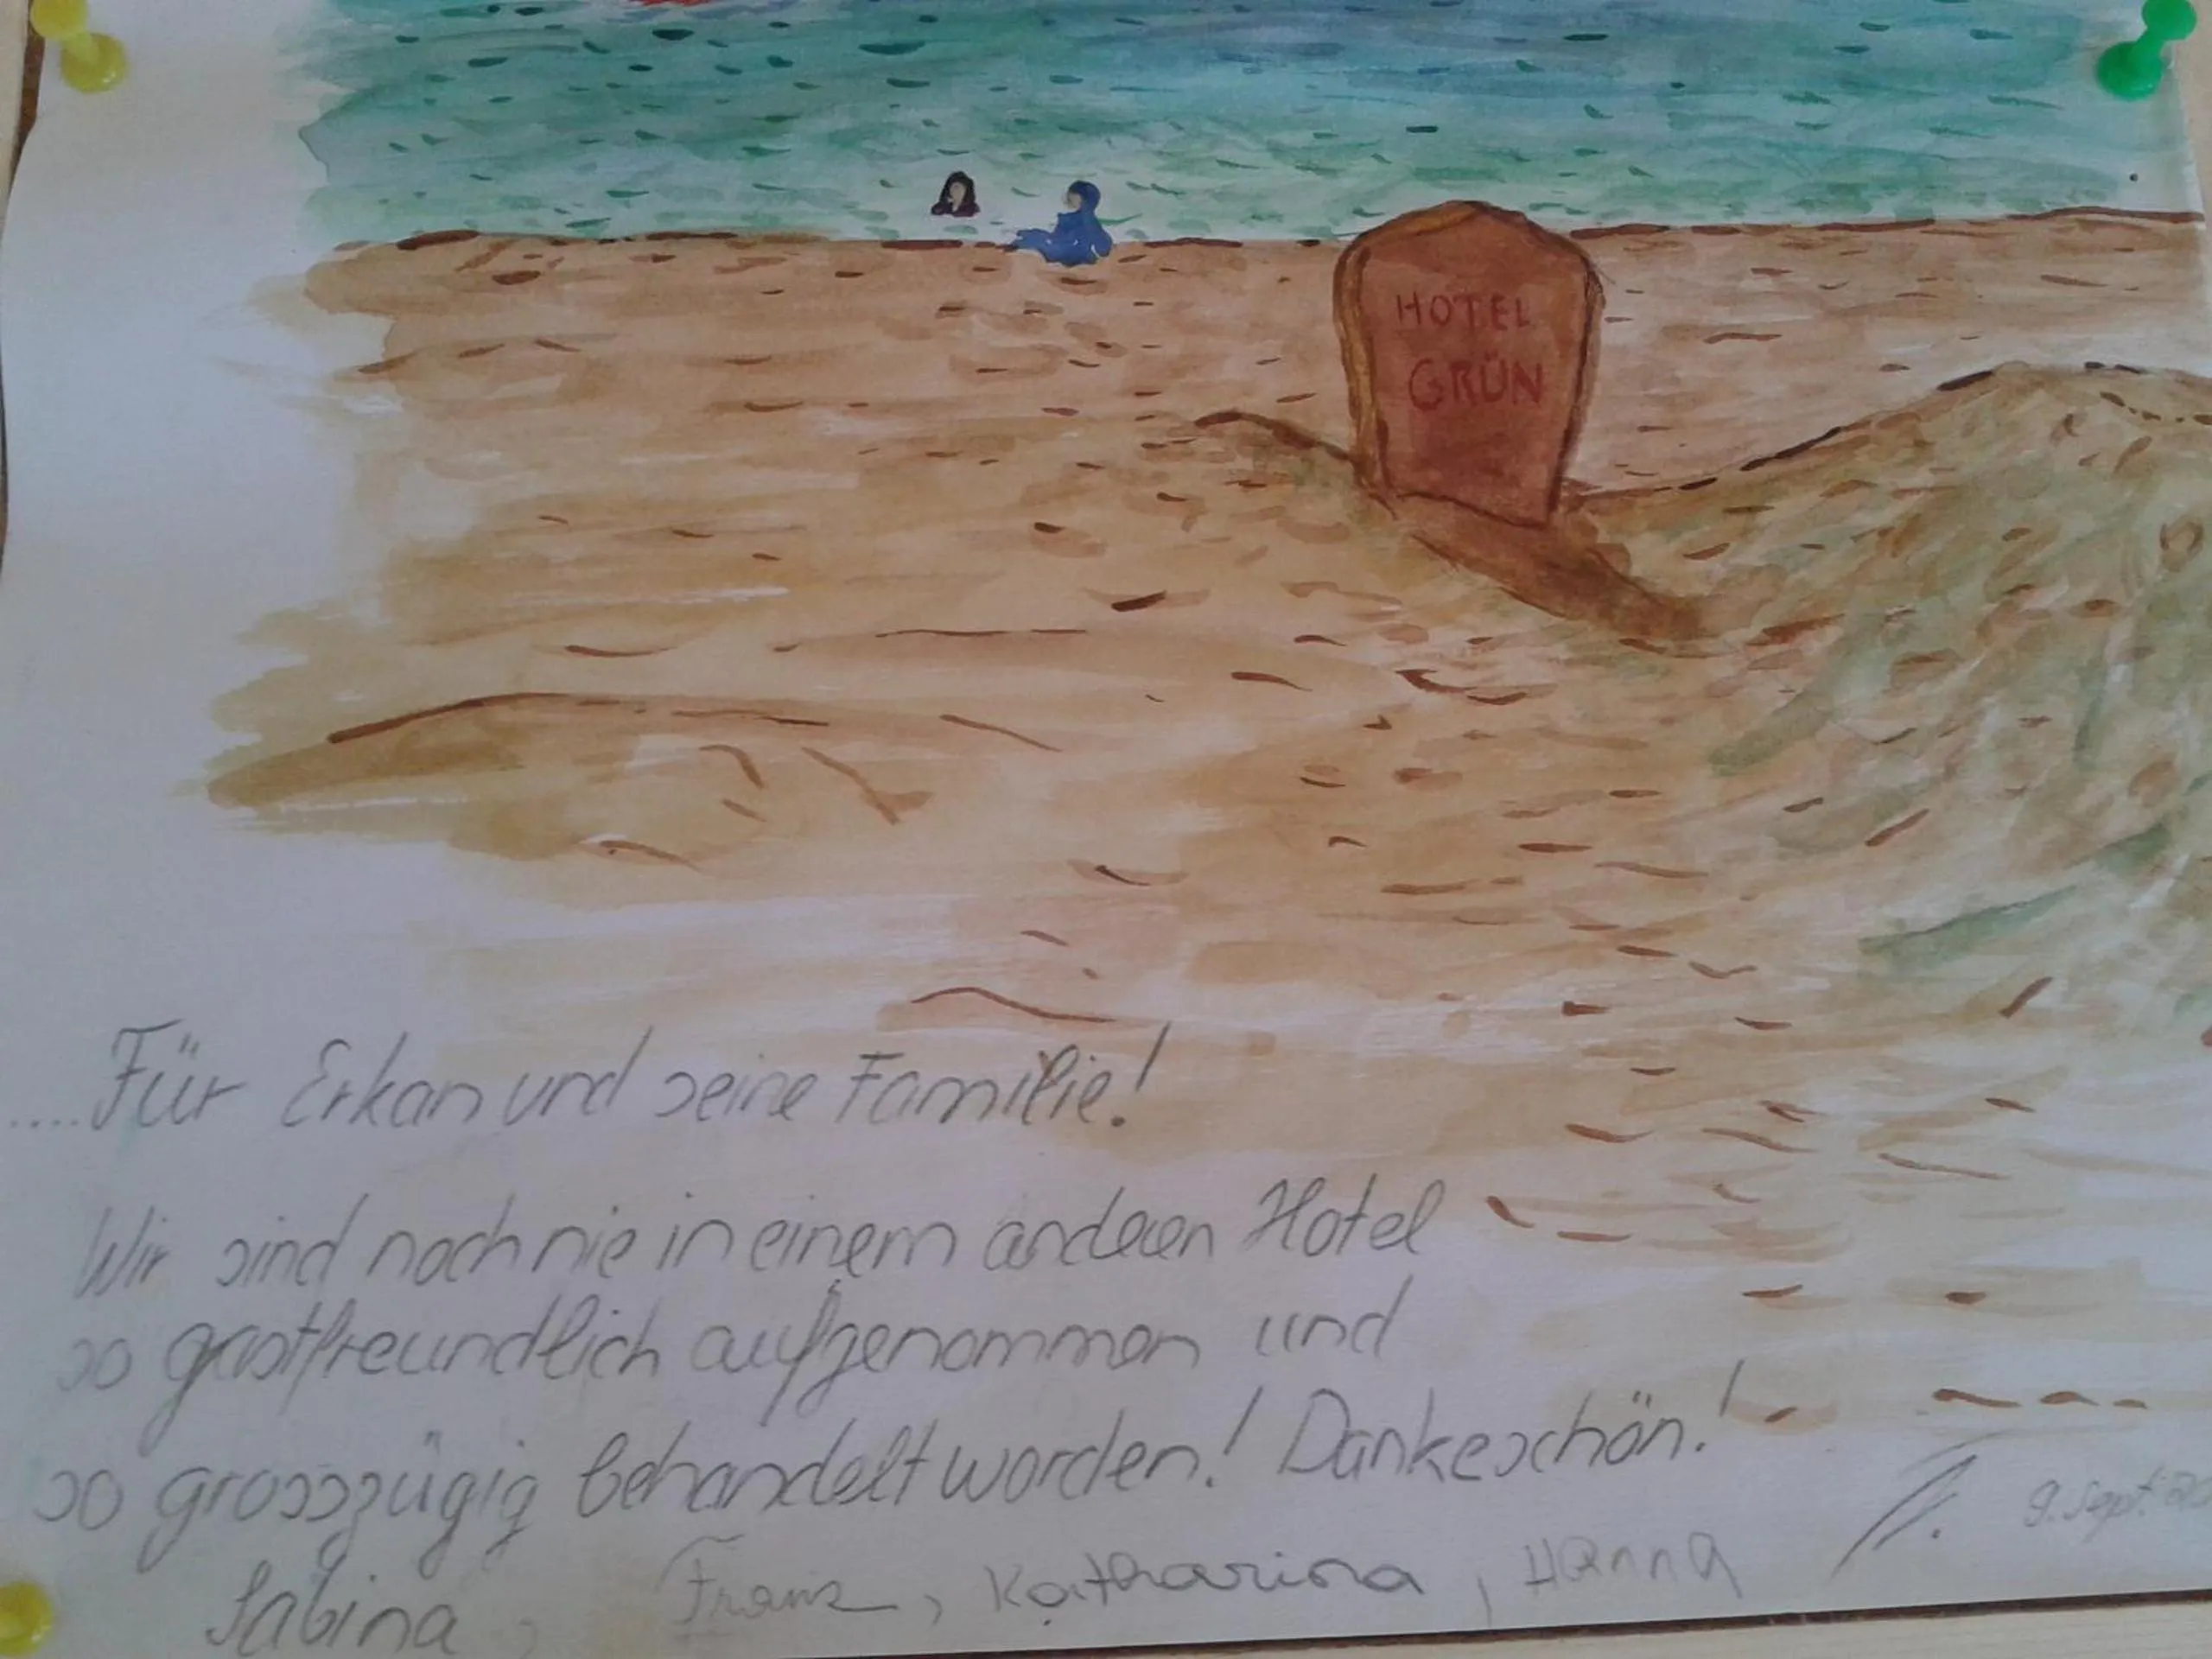 HOTEL
GRÜN
....Für Erkan und seine Familie!
Wir sind noch nie in einem anderen Hotel
so gastfreundlich aufgenommen und
so grosszügig behandelt worden! Dankeschön!
9. Sept.
Sabina, Franz, Katharina, Hanna